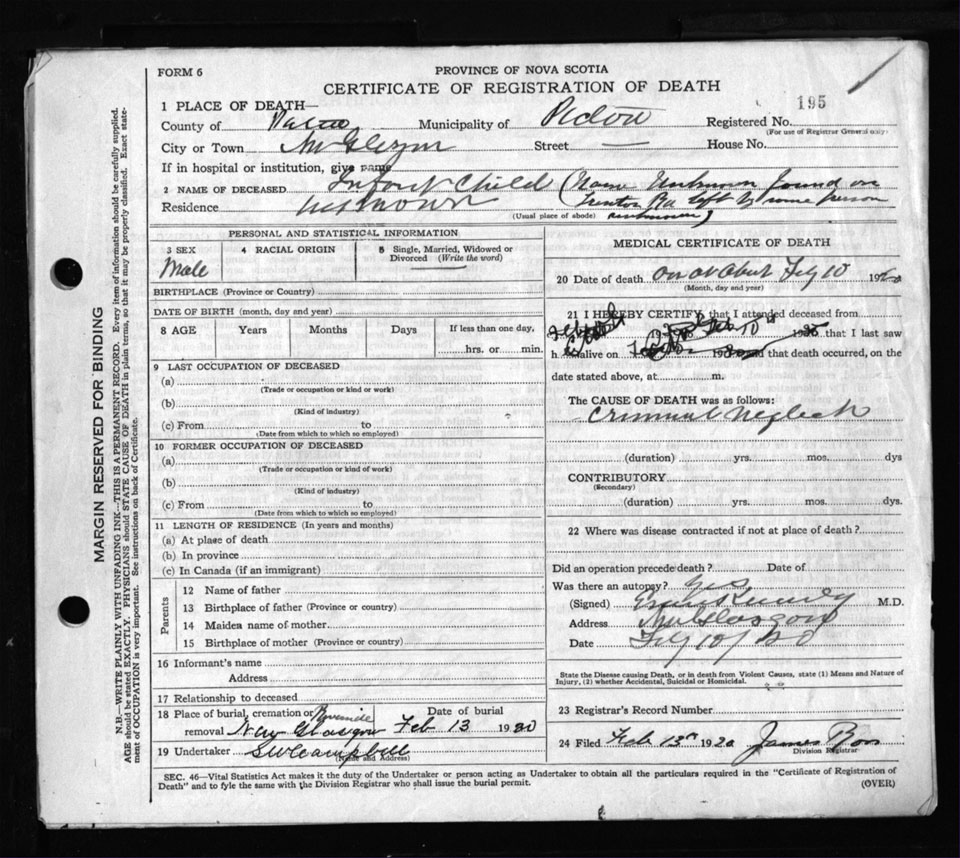 FORM 6
PROVINCE OF NOVA SCOTIA
CERTIFICATE OF REGISTRATION OF DEATH
195
1 PLACE OF DEATH—
County of Municipality of Pictou Registered No.
(For use of Registrar General only)
City or Town Street — House No.
If in hospital or institution, give name
2 NAME OF DECEASED Infant Child (Name Unknown found on
Residence Unknown Trenton Rd left by some person
(Usual place of abode) unknown)
PERSONAL AND STATISTICAL INFORMATION
3 SEX 4 RACIAL ORIGIN 5 Single, Married, Widowed or
Divorced (Write the word)
Male —
BIRTHPLACE (Province or Country)
DATE OF BIRTH (month, day and year)
8 AGE Years Months Days If less than one day,
hrs. or min.
9 LAST OCCUPATION OF DECEASED
(a)
(Trade or occupation or kind or work)
(b)
(Kind of industry)
(c) From to
(Date from which to which so employed)
10 FORMER OCCUPATION OF DECEASED
(a)
(Trade or occupation or kind or work)
(b)
(Kind of industry)
(c) From to
(Date from which to which so employed)
11 LENGTH OF RESIDENCE (In years and months)
(a) At place of death
(b) In province
(c) In Canada (if an immigrant)
Parents
12 Name of father
13 Birthplace of father (Province or country)
14 Maiden name of mother
15 Birthplace of mother (Province or country)
16 Informant's name
Address
17 Relationship to deceased
18 Place of burial, cremation or Riverside Date of burial
removal New Glasgow Feb 13 1920
19 Undertaker S W Campbell
(Name and Address)
MEDICAL CERTIFICATE OF DEATH
20 Date of death on or about Feby 10 192
(Month, day and year)
21 I HEREBY CERTIFY, that I attended deceased from
Feb 10th 19 that I last saw
h alive on 19 and that death occurred, on the
date stated above, at m.
The CAUSE OF DEATH was as follows:
Criminal Neglect
(duration) yrs. mos. dys
CONTRIBUTORY
(Secondary)
(duration) yrs. mos. dys.
22 Where was disease contracted if not at place of death?
Did an operation precede death? Date of
Was there an autopsy? Yes
(Signed) Kennedy M.D.
Address New Glasgow
Date Feby 10/20
State the Disease causing Death, or in death from Violent Causes, state (1) Means and Nature of
Injury, (2) whether Accidental, Suicidal or Homicidal.
23 Registrar's Record Number
24 Filed Feb 13th 1920 James
Division Registrar
SEC. 46—Vital Statistics Act makes it the duty of the Undertaker or person acting as Undertaker to obtain all the particulars required in the "Certificate of Registration of
Death" and to fyle the same with the Division Registrar who shall issue the burial permit.
(OVER)
MARGIN RESERVED FOR BINDING
N.B.—WRITE PLAINLY WITH UNFADING INK—THIS IS A PERMANENT RECORD. Every item of information should be carefully supplied.
AGE should be stated EXACTLY. PHYSICIANS should STATE CAUSE OF DEATH in plain terms, so that it may be properly classified. Exact state-
ment of OCCUPATION is very important. See instructions on back of Certificate.